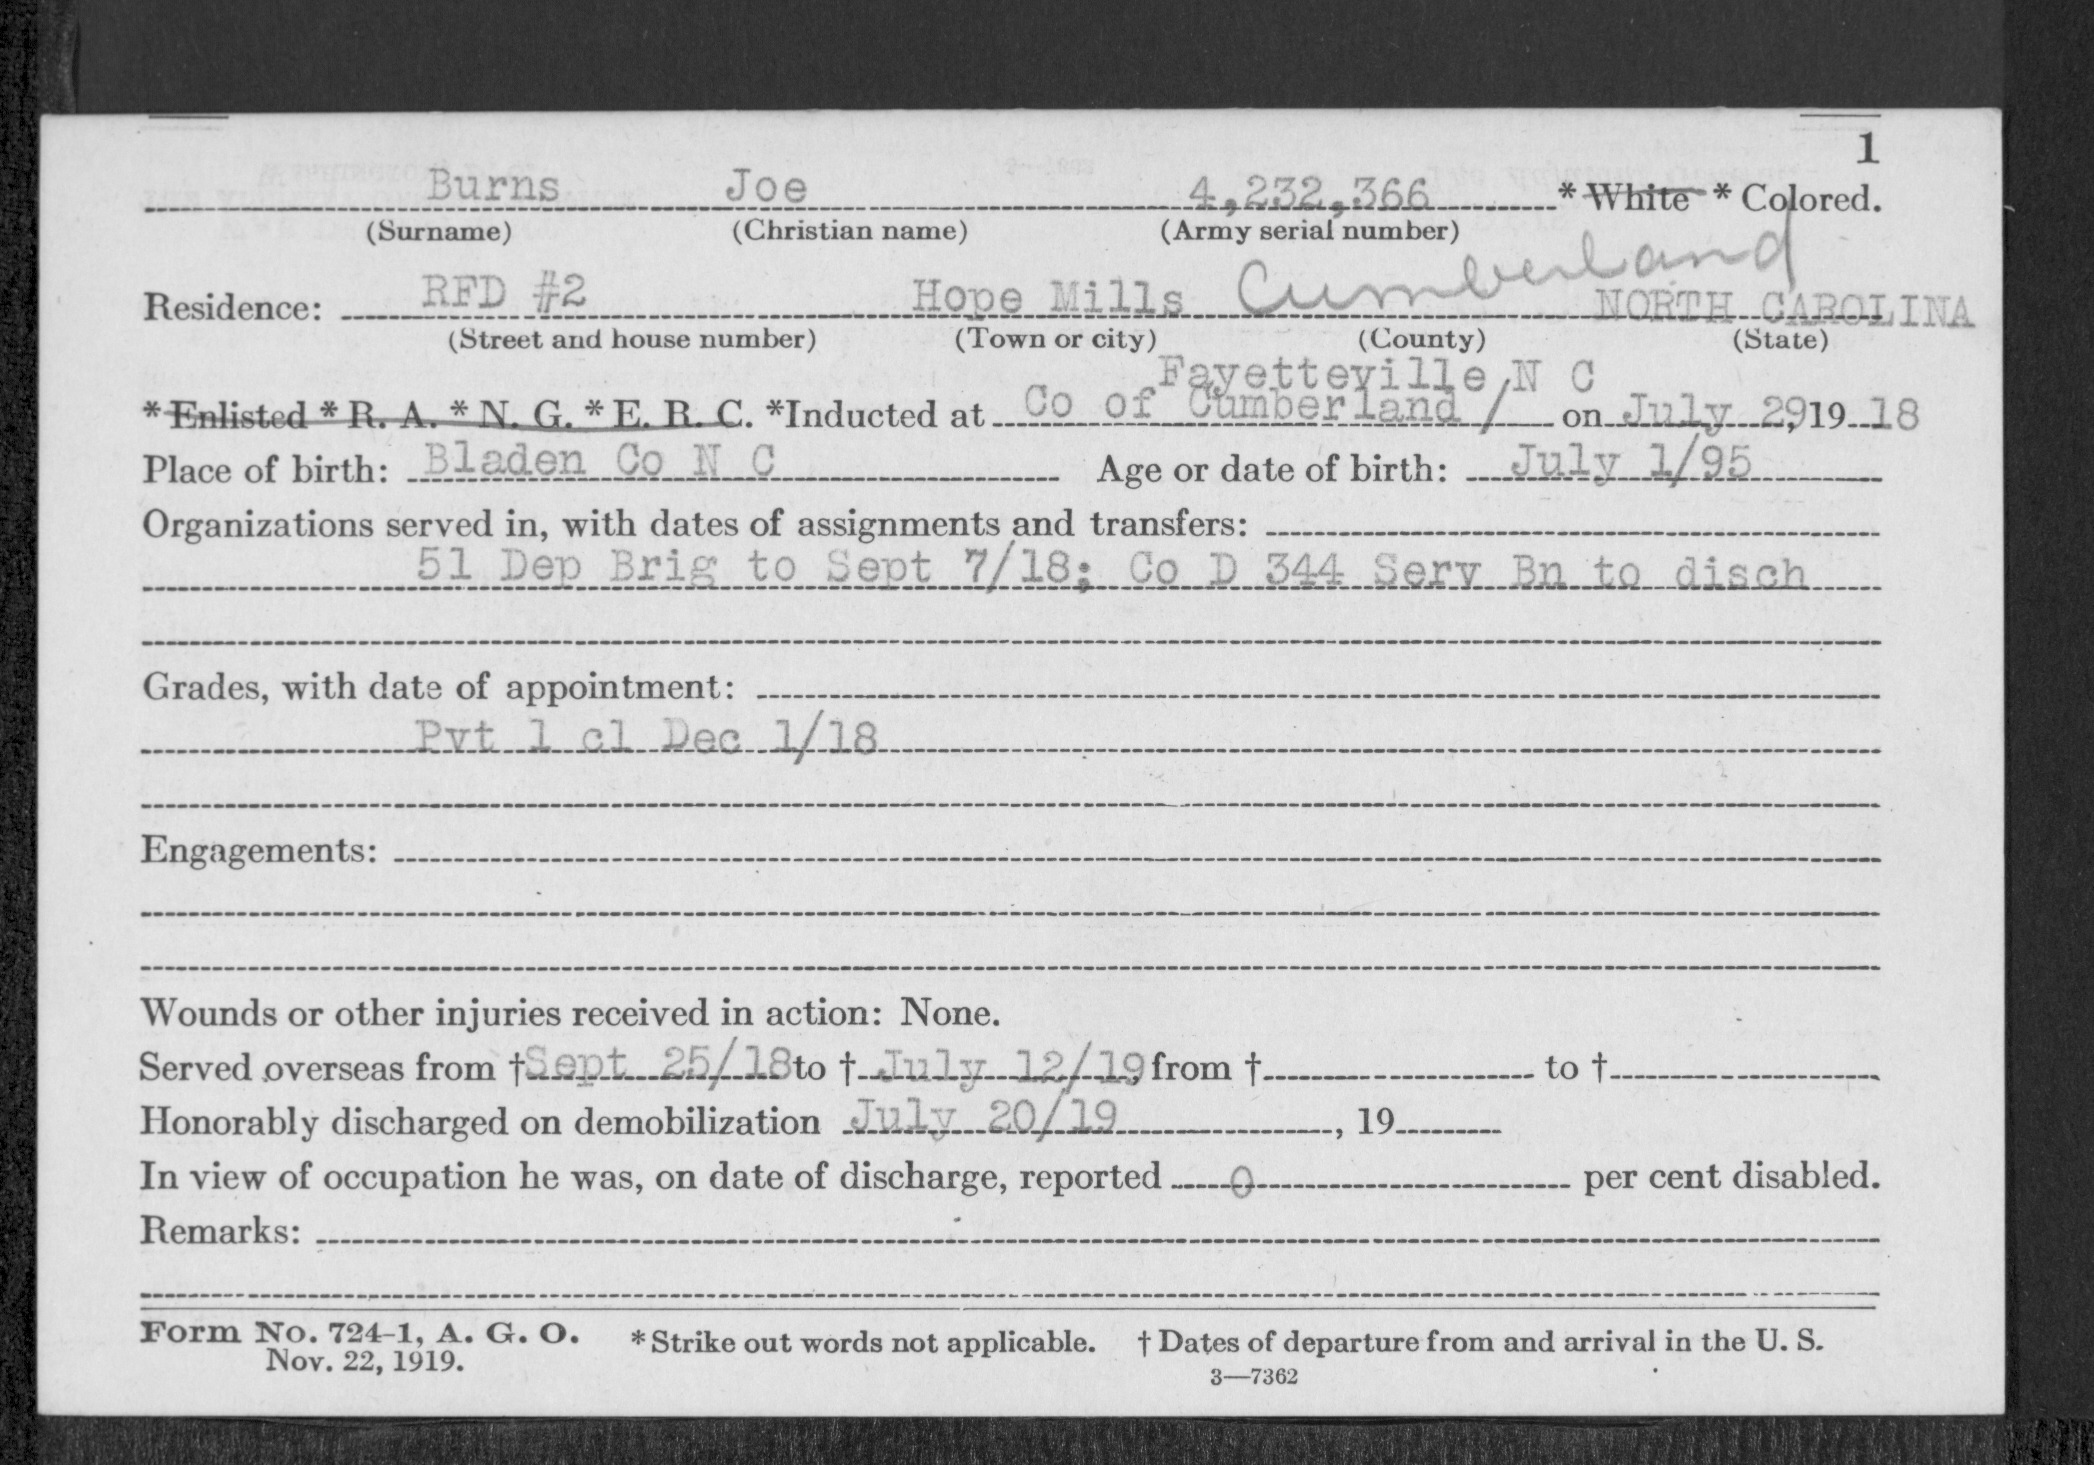 1
Burns Joe 4,232,366 * White * Colored.
(Surname) (Christian name) (Army serial number)
Residence: RFD #2 Hope Mills Cumberland NORTH CAROLINA
(Street and house number) (Town or city) (County) (State)
Fayetteville N C
* Enlisted * R. A. * N. G. * E. R. C. *Inducted at Co of Cumberland / on July 29, 19 18
Place of birth: Bladen Co N C Age or date of birth: July 1/95
Organizations served in, with dates of assignments and transfers:
51 Dep Brig to Sept 7/18; Co D 344 Serv Bn to disch
Grades, with date of appointment:
Pvt 1 cl Dec 1/18
Engagements:
Wounds or other injuries received in action: None.
Served overseas from † Sept 25/18 to † July 12/19, from † to †
Honorably discharged on demobilization July 20/19, 19
In view of occupation he was, on date of discharge, reported 0 per cent disabled.
Remarks:
Form No. 724-1, A. G. O. * Strike out words not applicable. † Dates of departure from and arrival in the U. S.
Nov. 22, 1919. 3—7362